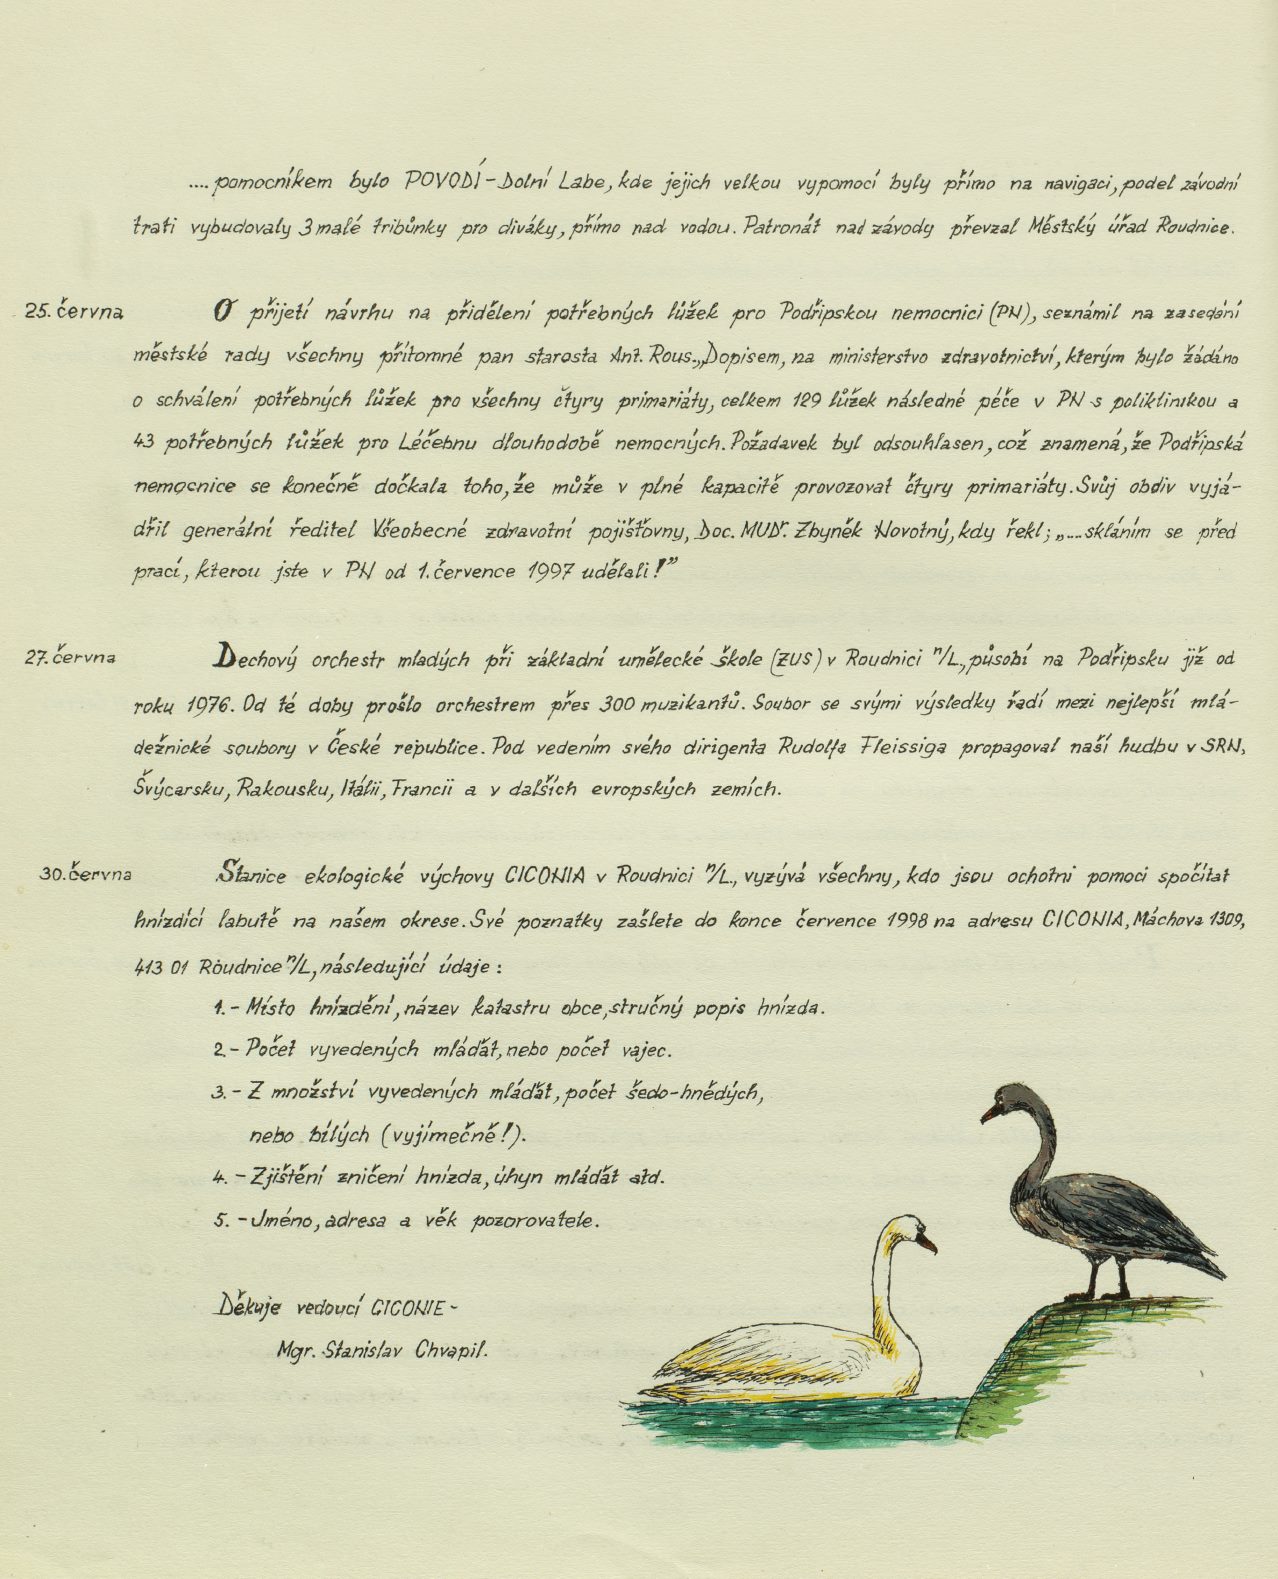 .... pomocníkem bylo POVODÍ-Dolní Labe, kde jejich velkou vypomocí byly přímo na navigaci, podel závodní
trati vybudovaly 3 malé tribůnky pro diváky, přímo nad vodou. Patronát nad závody převzal Městský úřad Roudnice.
25. června O přijetí návrhu na přidělení potřebných lůžek pro Podřipskou nemocnici (PN), seznámil na zasedání
městské rady všechny přítomné pan starosta Ant. Rous. „Dopisem, na ministerstvo zdravotnictví, kterým bylo žádáno
o schválení potřebných lůžek pro všechny čtyry primariáty, celkem 129 lůžek následné péče v PN s poliklinikou a
43 potřebných lůžek pro Léčebnu dlouhodobě nemocných. Požadavek byl odsouhlasen, což znamená, že Podřipská
nemocnice se konečně dočkala toho, že může v plné kapacitě provozovat čtyry primariáty. Svůj obdiv vyjá-
dřil generální ředitel Všeobecné zdravotní pojišťovny, Doc. MUDr. Zbyněk Novotný, kdy řekl; „....skláním se před
prací, kterou jste v PN od 1. července 1997 udělali!”
27. června Dechový orchestr mladých při základní umělecké škole (ZUS) v Roudnici n/L., působí na Podřipsku již od
roku 1976. Od té doby prošlo orchestrem přes 300 muzikantů. Soubor se svými výsledky řadí mezi nejlepší mlá-
dežnické soubory v České republice. Pod vedením svého dirigenta Rudolfa Fleissiga propagoval naší hudbu v SRN,
Švýcarsku, Rakousku, Itálii, Francii a v dalších evropských zemích.
30. června Stanice ekologické výchovy CICONIA v Roudnici n/L., vyzývá všechny, kdo jsou ochotni pomoci spočítat
hnízdící labutě na našem okrese. Své poznatky zašlete do konce července 1998 na adresu CICONIA, Máchova 1309,
413 01 Roudnice n/L, následující údaje :
1. - Místo hnízdění, název katastru obce, stručný popis hnízda.
2. - Počet vyvedených mláďat, nebo počet vajec.
3. - Z množství vyvedených mláďat, počet šedo-hnědých,
nebo bílých (vyjímečně!).
4. - Zjištění zničení hnízda, úhyn mláďat atd.
5. - Jméno, adresa a věk pozorovatele.
Děkuje vedoucí CICONIE -
Mgr. Stanislav Chvapil.